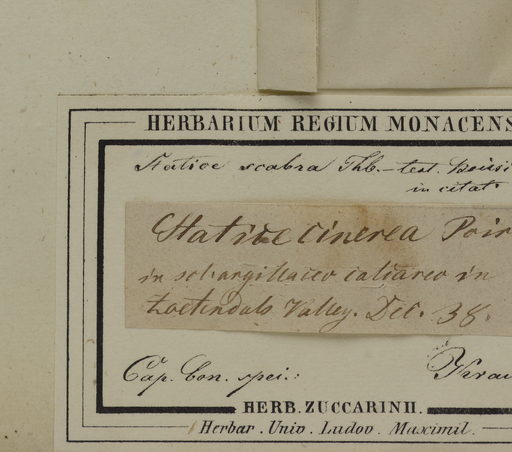 HERBARIUM REGIUM MONACENS
Statice scabra Thb. – test. Boissi
in citat.
Statice cinerea Poir
in sol. argillaceo calcareo in
Zoetendals Valley. Dec. 38.
Cap. bon. spei.: Krau
HERB. ZUCCARINII.
Herbar. Univ. Ludov. Maximil.